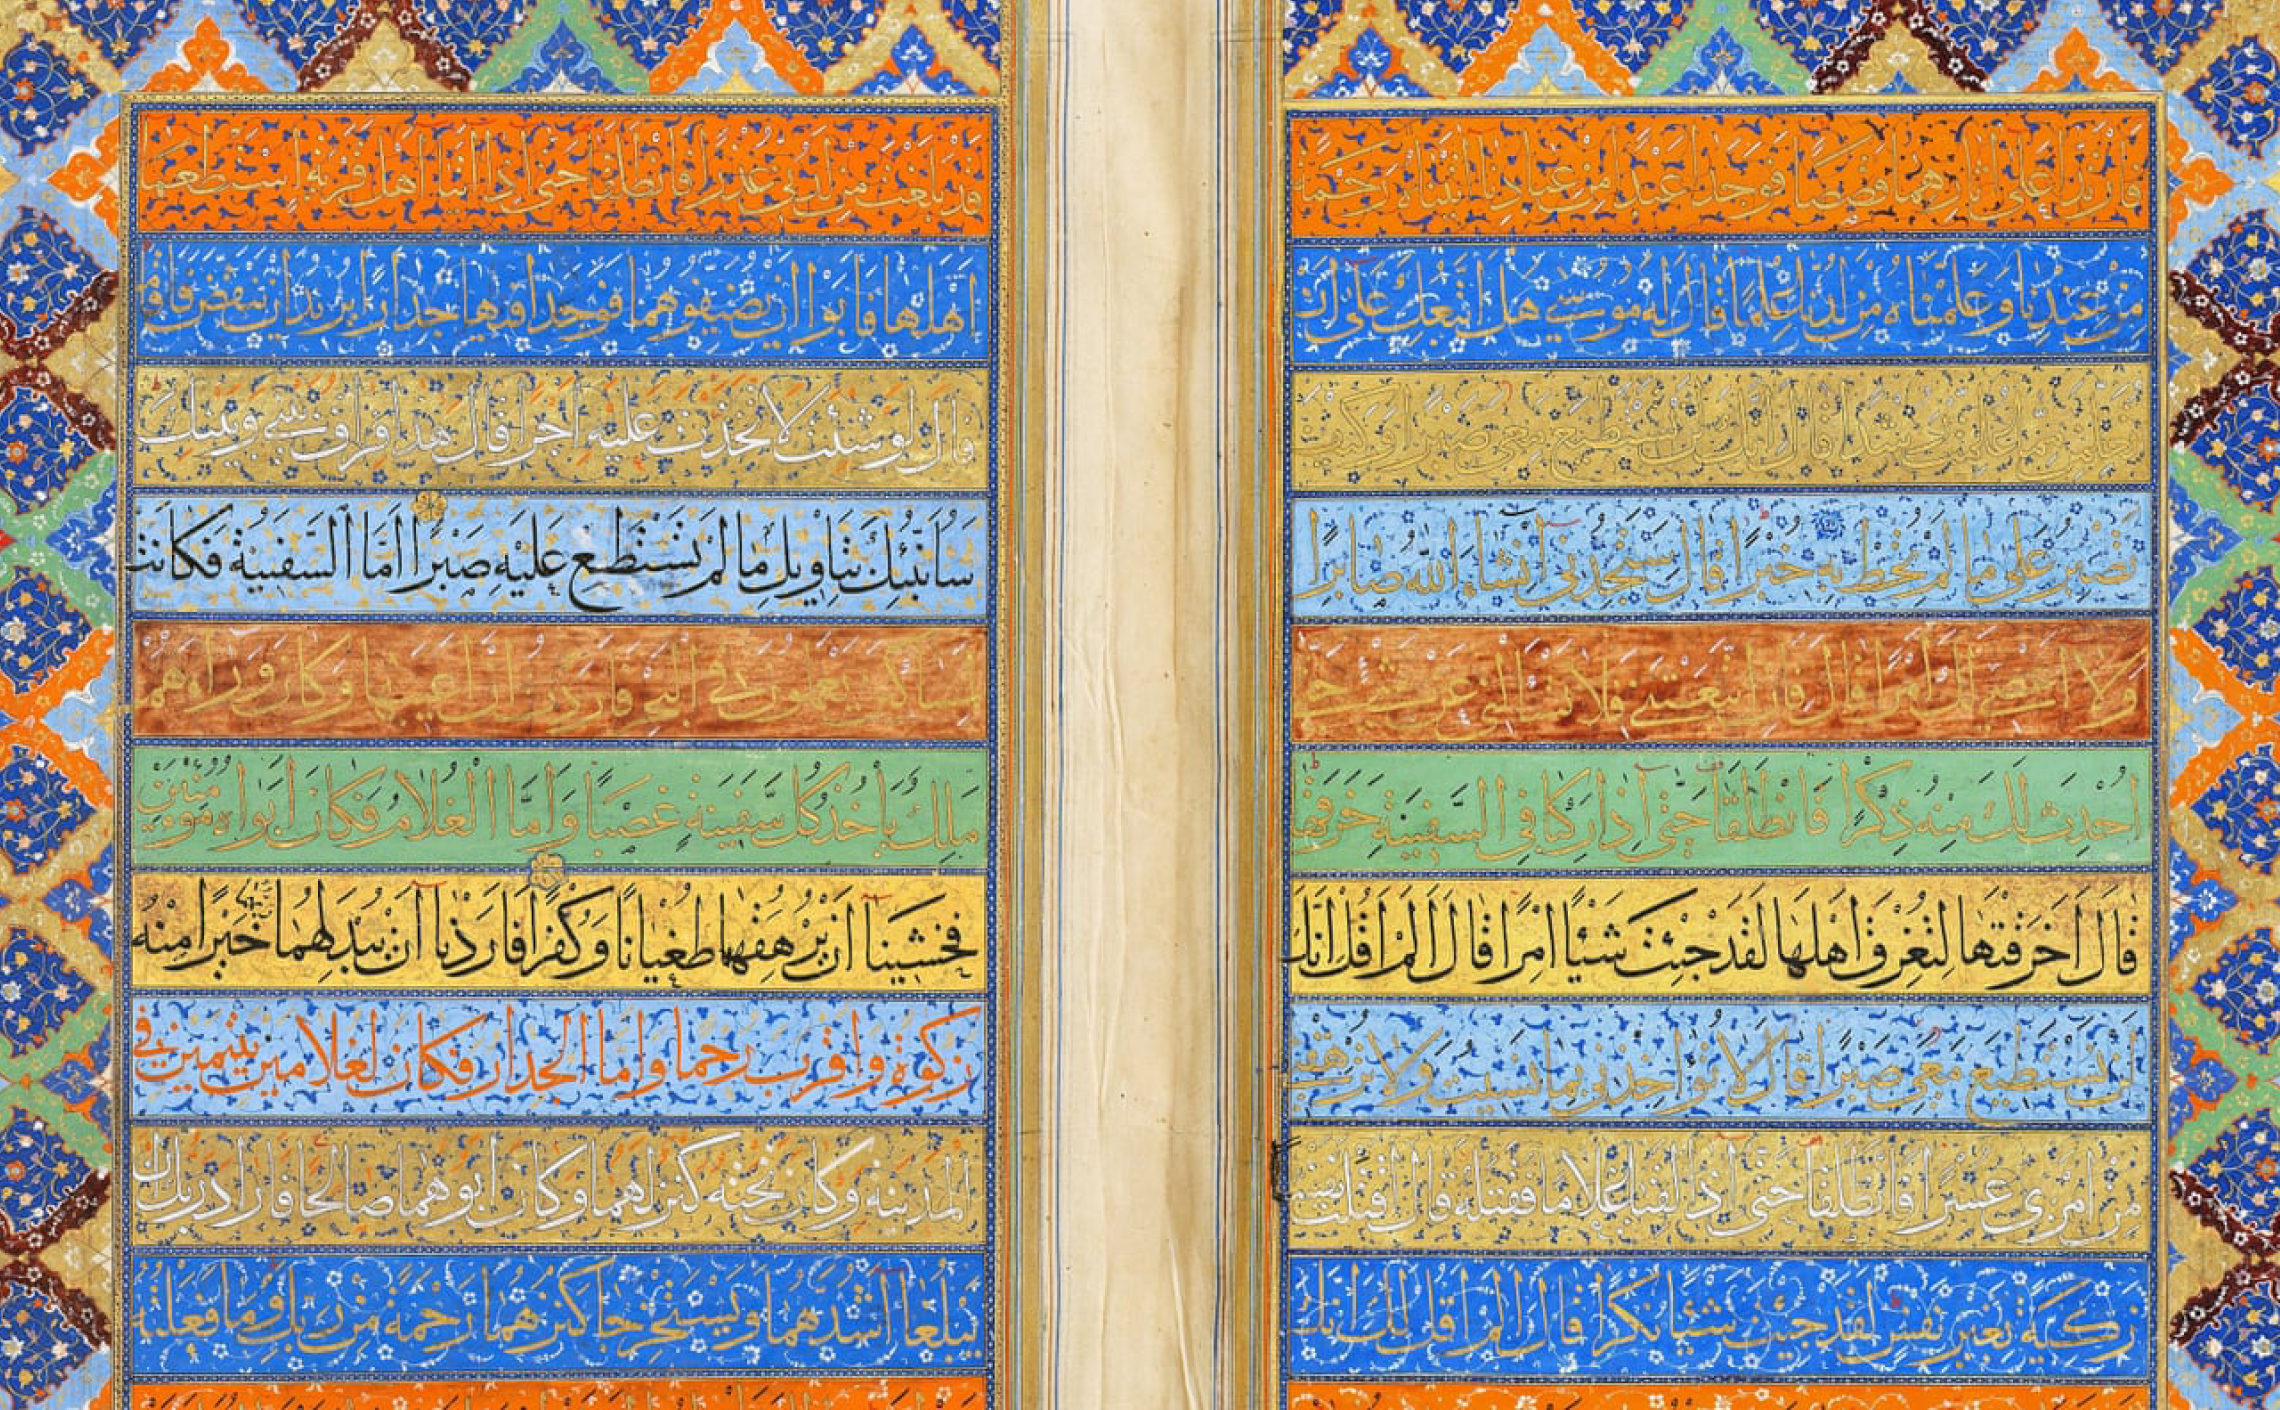 فارتدا على اثارهما قصصا فوجدا عبدا من عبادنا اتيناه رحمة
من عندنا وعلمناه من لدنا علما قال له موسى هل اتبعك على ان
تعلمن مما علمت رشدا قال انك لن تستطيع معي صبرا وكيف
تصبر على ما لم تحط به خبرا قال ستجدني انشاء الله صابرا
ولا اعصي لك امرا قال فان اتبعتني فلا تسالني عن شيء حتى
احدث لك منه ذكرا فانطلقا حتى اذا ركبا في السفينة خرقها
قال اخرقتها لتغرق اهلها لقد جئت شيئا امرا قال الم اقل انك
لن تستطيع معي صبرا قال لا تؤاخذني بما نسيت ولا ترهقني
من امري عسرا فانطلقا حتى اذا لقيا غلاما فقتله قال اقتلت نفسا
زكية بغير نفس لقد جئت شيئا نكرا قال الم اقل لك انك
قد بلغت من لدني عذرا فانطلقا حتى اذا اتيا اهل قرية استطعما
اهلها فابوا ان يضيفوهما فوجدا فيها جدارا يريد ان ينقض فاقامه
قال لو شئت لاتخذت عليه اجرا قال هذا فراق بيني وبينك
سانبئك بتاويل ما لم تستطع عليه صبرا اما السفينة فكانت
لمساكين يعملون في البحر فاردت ان اعيبها وكان وراءهم
ملك ياخذ كل سفينة غصبا واما الغلام فكان ابواه مؤمنين
فخشينا ان يرهقهما طغيانا وكفرا فاردنا ان يبدلهما ربهما خيرا منه
زكوة واقرب رحما واما الجدار فكان لغلامين يتيمين في
المدينة وكان تحته كنز لهما وكان ابوهما صالحا فاراد ربك ان
يبلغا اشدهما ويستخرجا كنزهما رحمة من ربك وما فعلته